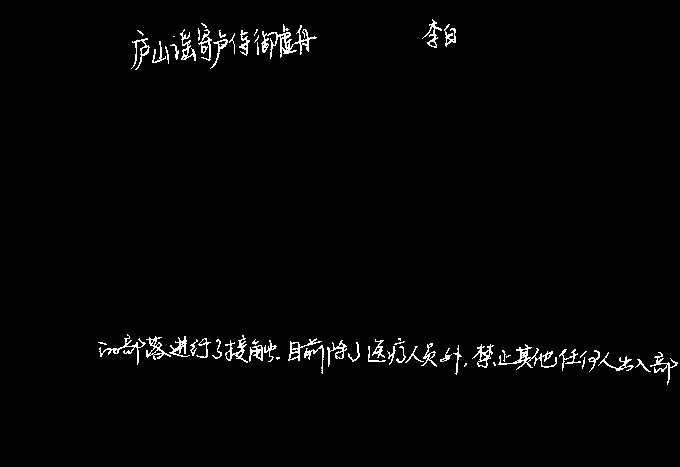 庐山谣寄卢侍御虚舟 李白
的部落进行了接触.目前除了医疗人员外,禁止其他任何人出入部